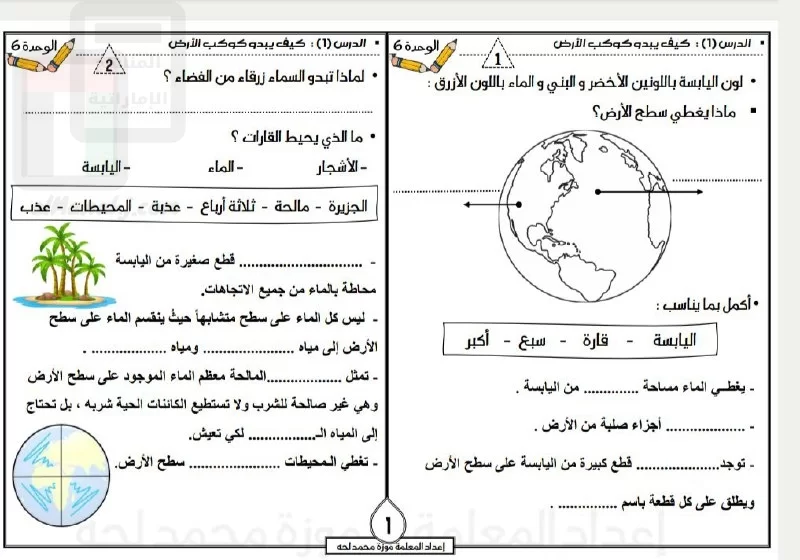 الدرس (1) : كيف يبدو كوكب الأرض
الوحدة 6
1
• لون اليابسة باللونين الأخضر و البني و الماء باللون الأزرق :
▪ ماذا يغطي سطح الأرض؟
• أكمل بما يناسب :
اليابسة - قارة - سبع - أكبر
- يغطي الماء مساحة ............ من اليابسة .
- .................. أجزاء صلبة من الأرض .
- توجد.................. قطع كبيرة من اليابسة على سطح الأرض
ويطلق على كل قطعة باسم .............. .
الدرس (1) : كيف يبدو كوكب الأرض
الوحدة 6
2
• لماذا تبدو السماء زرقاء من الفضاء ؟
• ما الذي يحيط القارات ؟
-الأشجار -الماء -اليابسة
الجزيرة - مالحة - ثلاثة أرباع - عذبة - المحيطات - عذب
- ............................ قطع صغيرة من اليابسة
محاطة بالماء من جميع الاتجاهات.
- ليس كل الماء على سطح متشابهاً حيثُ ينقسم الماء على سطح
الأرض إلى مياه .................... ومياه ................. .
- تمثل ..................المالحة معظم الماء الموجود على سطح الأرض
وهي غير صالحة للشرب ولا تستطيع الكائنات الحية شربه ، بل تحتاج
إلى المياه الـ................ لكي تعيش.
- تغطي المحيطات .................... سطح الأرض.
1
إعداد المعلمة موزة محمد لحه
إعداد المعلمة موزة محمد لحه
المناهج
الإماراتية